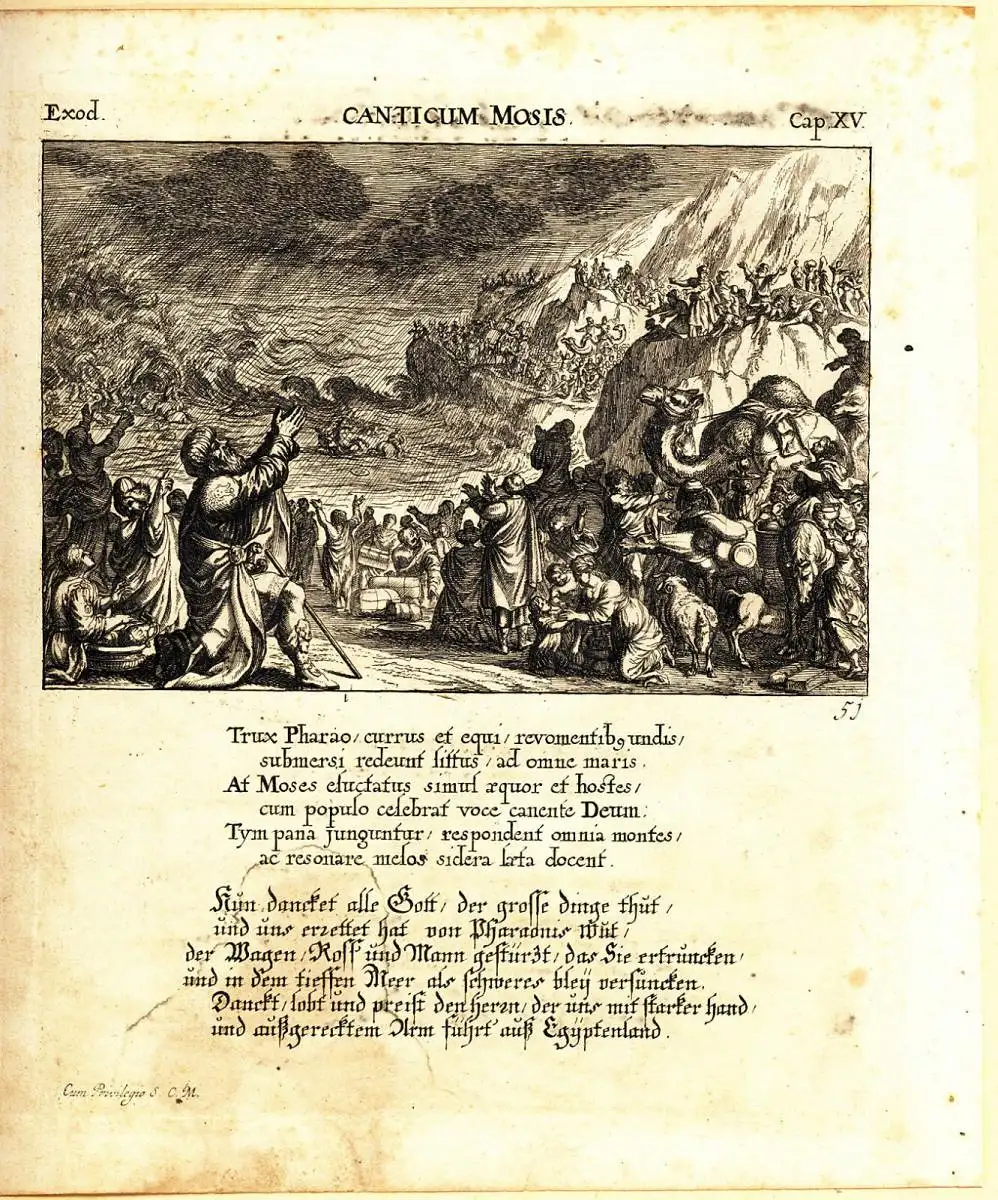 Exod.
CANTICUM MOSIS.
Cap. XV.
51
Trux Pharao/ currus et equi/ revomentibꝫ undis/
submersi redeunt littus/ ad omne maris.
At Moses eluctatus simul æquor et hostes/
cum populo celebrat voce canente Deum:
Tym pana junguntur/ respondent omnia montes/
ac resonare melos sidera læta docent.
Nun dancket alle Gott/ der grosse dinge thut/
und uns errettet hat von Pharaonis Wut/
der Wagen/ Ross und Mann gestürzt/ das Sie ertruncken/
und in dem tieffen Meer als schweres bleÿ versuncken.
Danckt/ lobt und preist den herrn/ der uns mit starker hand/
und außgerecktem Arm führt auß Egÿptenland.
Cum Privilegio S. C. M.